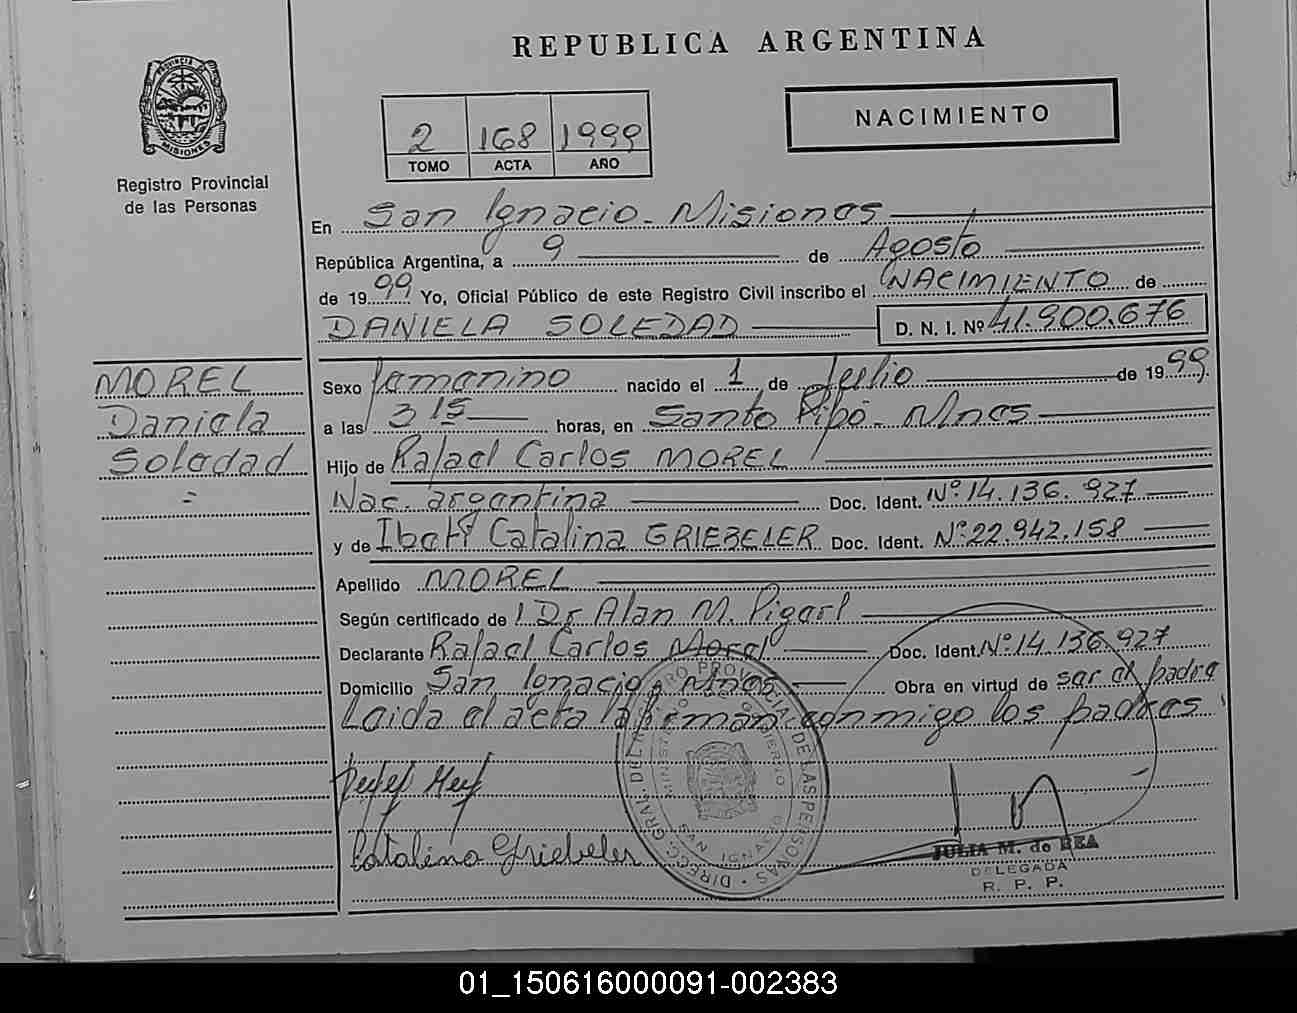 REPUBLICA ARGENTINA
PROVINCIA DE MISIONES
Registro Provincial
de las Personas
2 168 1999
TOMO ACTA AÑO
NACIMIENTO
En San Ignacio - Misiones
República Argentina, a 9 de Agosto
de 1999 Yo, Oficial Público de este Registro Civil inscribo el NACIMIENTO de
DANIELA SOLEDAD D. N. I. Nº 41.900.676
MOREL
Daniela
Soledad
Sexo femenino nacido el 1 de Julio de 1999.
a las 3 15 horas, en Santo Pipó - Mnes
Hijo de Rafael Carlos MOREL
Nac. argentina Doc. Ident. Nº 14.136.927
y de Ibeti Catalina GRIEBELER Doc. Ident. Nº 22.942.158
Apellido MOREL
Según certificado de l Dr Alan M.
Declarante Rafael Carlos Morel Doc. Ident. Nº 14.136.927
Domicilio San Ignacio, Mnes Obra en virtud de ser el padre
Leida el acta la firman conmigo los padres
Catalina Griebeler
DIRECC. GRAL. DEL REGISTRO PROVINCIAL DE LAS PERSONAS
MINISTERIO DE GOBIERNO
SAN IGNACIO
JULIA M. de REA
DELEGADA
R. P. P.
01_150616000091-002383